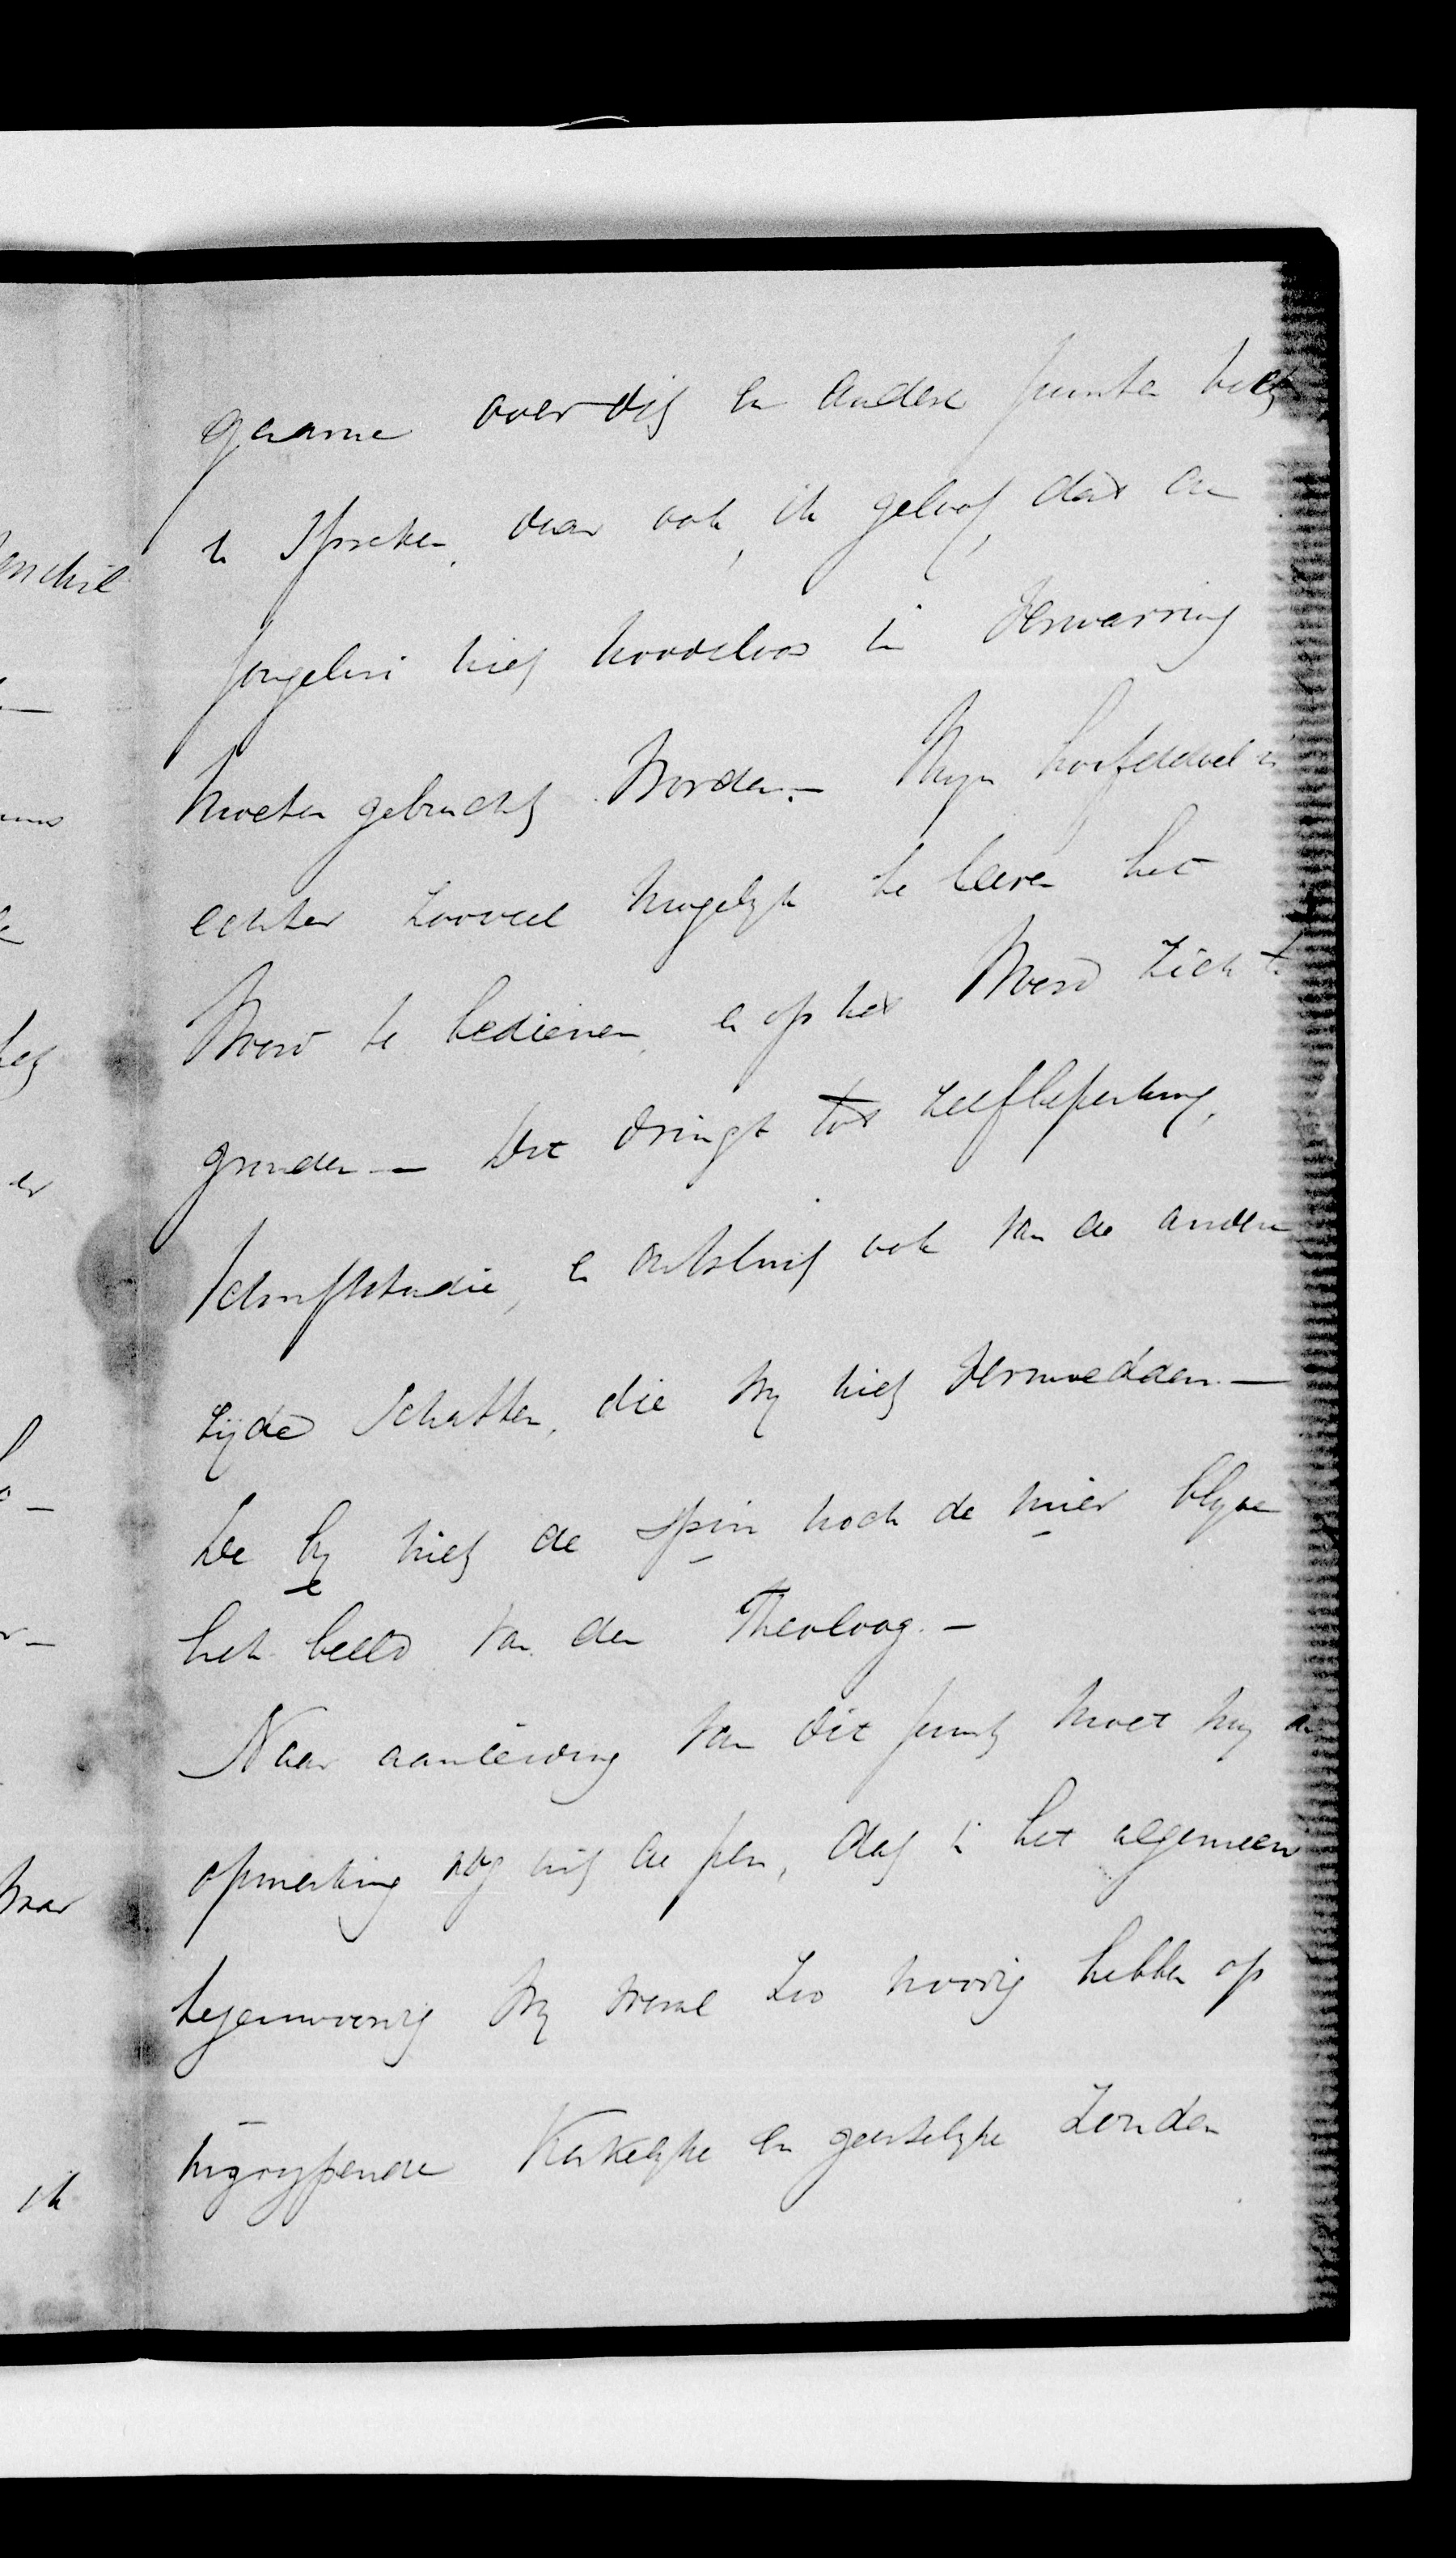 gaarne over dit en andere punten
te spreken, daar ook, ik geloof, dat de
jongeren niet noodeloos in verwarring
moeten gebracht worden. — Mijn hoofddoel is
echter zooveel mogelijk te leeren het
Woord te bedienen, en op het Woord zich te
gronden — Dit dringt tot zelfbeperking,
Schriftstudie, en ontsluit ook van de andere
zijde schatten, die wij niet vermoedden. —
De bij niet de spin noch de mier blijve
het beeld van den Theoloog. —
Naar aanleiding van dit punt moet mij de
opmerking nog uit de pen, dat in het algemeen
tegenwoordig wij zoo noodig hebben op
ingrijpende Kerkelijke en geestelijke zonden
verschil
het
er
maar
ik